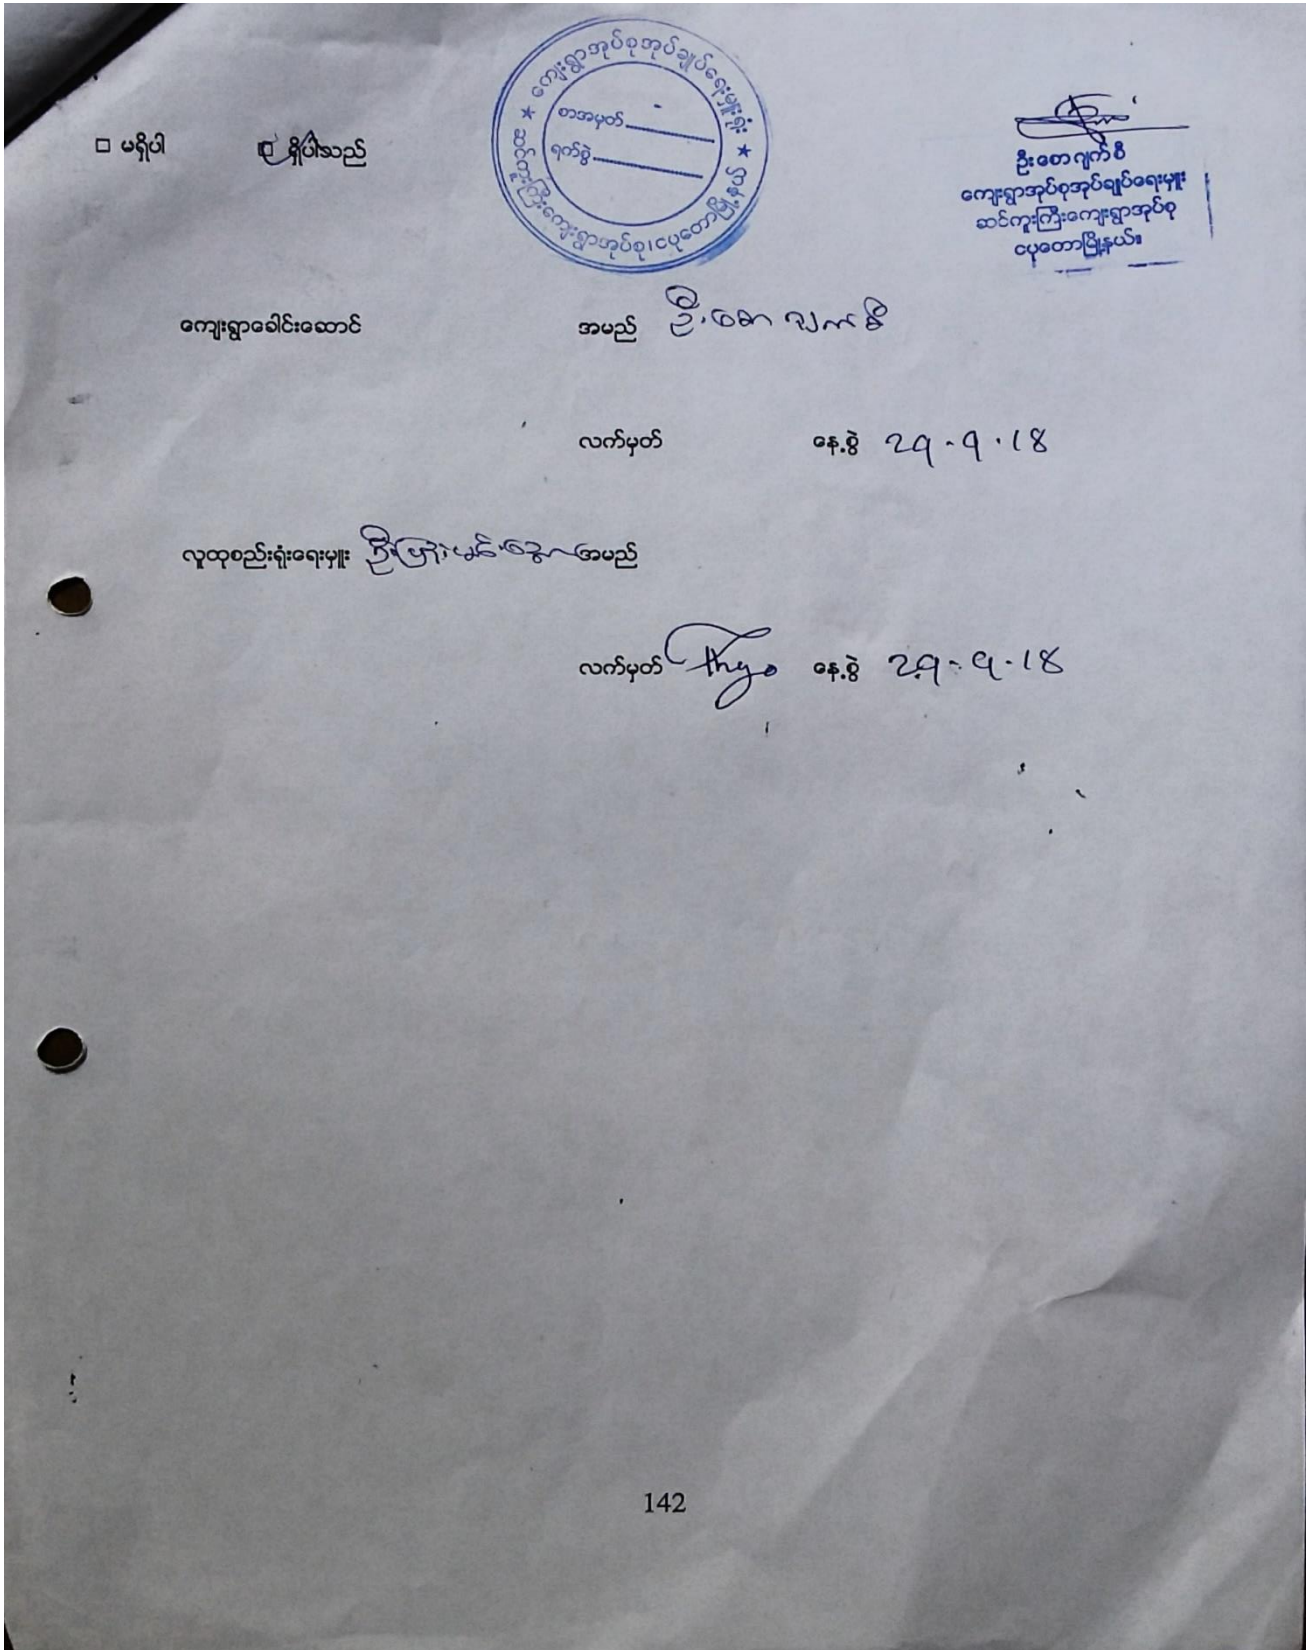 ကျေးရွာအုပ်စုအုပ်ချုပ်ရေးမှူးရုံး
စာအမှတ်
ရက်စွဲ
ဆင်ကူးကြီးကျေးရွာအုပ်စု၊ ငပုတောမြို့နယ်
□ မရှိပါ □ ရှိပါသည်
ဦးစောဂျက်စီ
ကျေးရွာအုပ်စုအုပ်ချုပ်ရေးမှူး
ဆင်ကူးကြီးကျေးရွာအုပ်စု
ငပုတောမြို့နယ်။
ကျေးရွာခေါင်းဆောင် အမည် ဦးစောဂျက်စီ
လက်မှတ် နေ့စွဲ 29-9-18
လူထုစည်းရုံးရေးမှူး ဦးဖြိုးမင်းသော အမည်
လက်မှတ် နေ့စွဲ 29-9-18
142